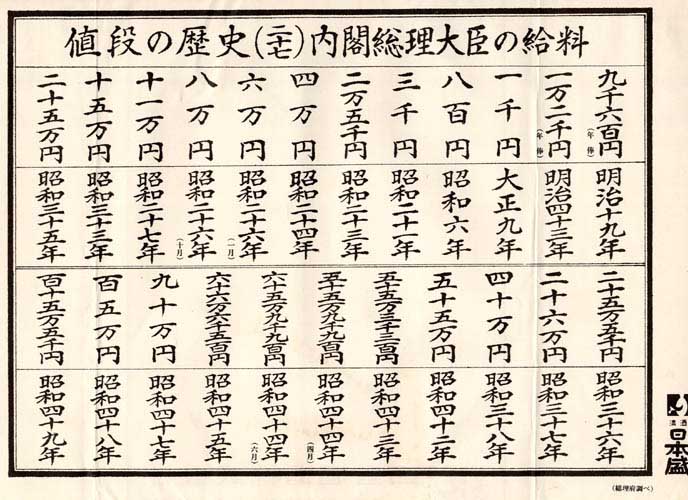 値段の歴史(二七)内閣総理大臣の給料
九千六百円(年俸) 明治十九年
一万二千円(年俸) 明治四十三年
一千円 大正九年
八百円 昭和六年
三千円 昭和二十一年
二万五千円 昭和二十三年
四万円 昭和二十四年
六万円 昭和二十六年(一月)
八万円 昭和二十六年(十月)
十一万円 昭和二十七年
十五万円 昭和三十三年
二十五万円 昭和三十五年
二十五万五千円 昭和三十六年
二十六万円 昭和三十七年
四十万円 昭和三十八年
五十五万円 昭和四十二年
五十五万三千三百円 昭和四十三年
五十五万九千九百円 昭和四十四年(四月)
六十五万九千九百円 昭和四十四年(六月)
六十六万六千五百円 昭和四十五年
九十万円 昭和四十七年
百五万円 昭和四十八年
百十五万五千円 昭和四十九年
清酒
日本盛
(総理府調べ)